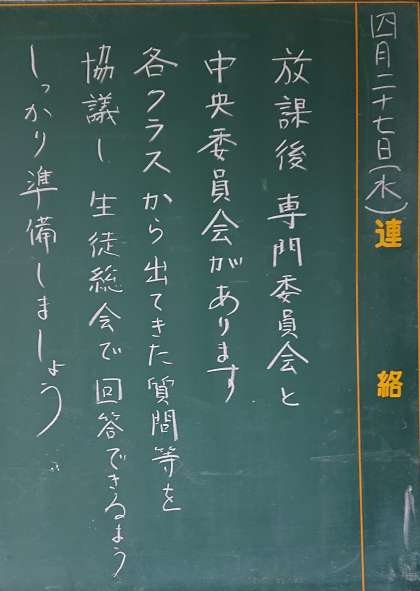 四月二十七日(水)
連絡
放課後 専門委員会と
中央委員会があります
各クラスから出てきた質問等を
協議し 生徒総会で回答できるよう
しっかり準備しましょう